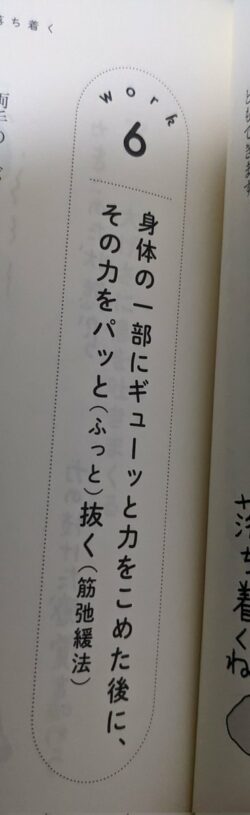 落ち着くね
work
6
身体の一部にギューッと力をこめた後に、
その力をパッと(ふっと)抜く(筋弛緩法)
落ち着く
両手の